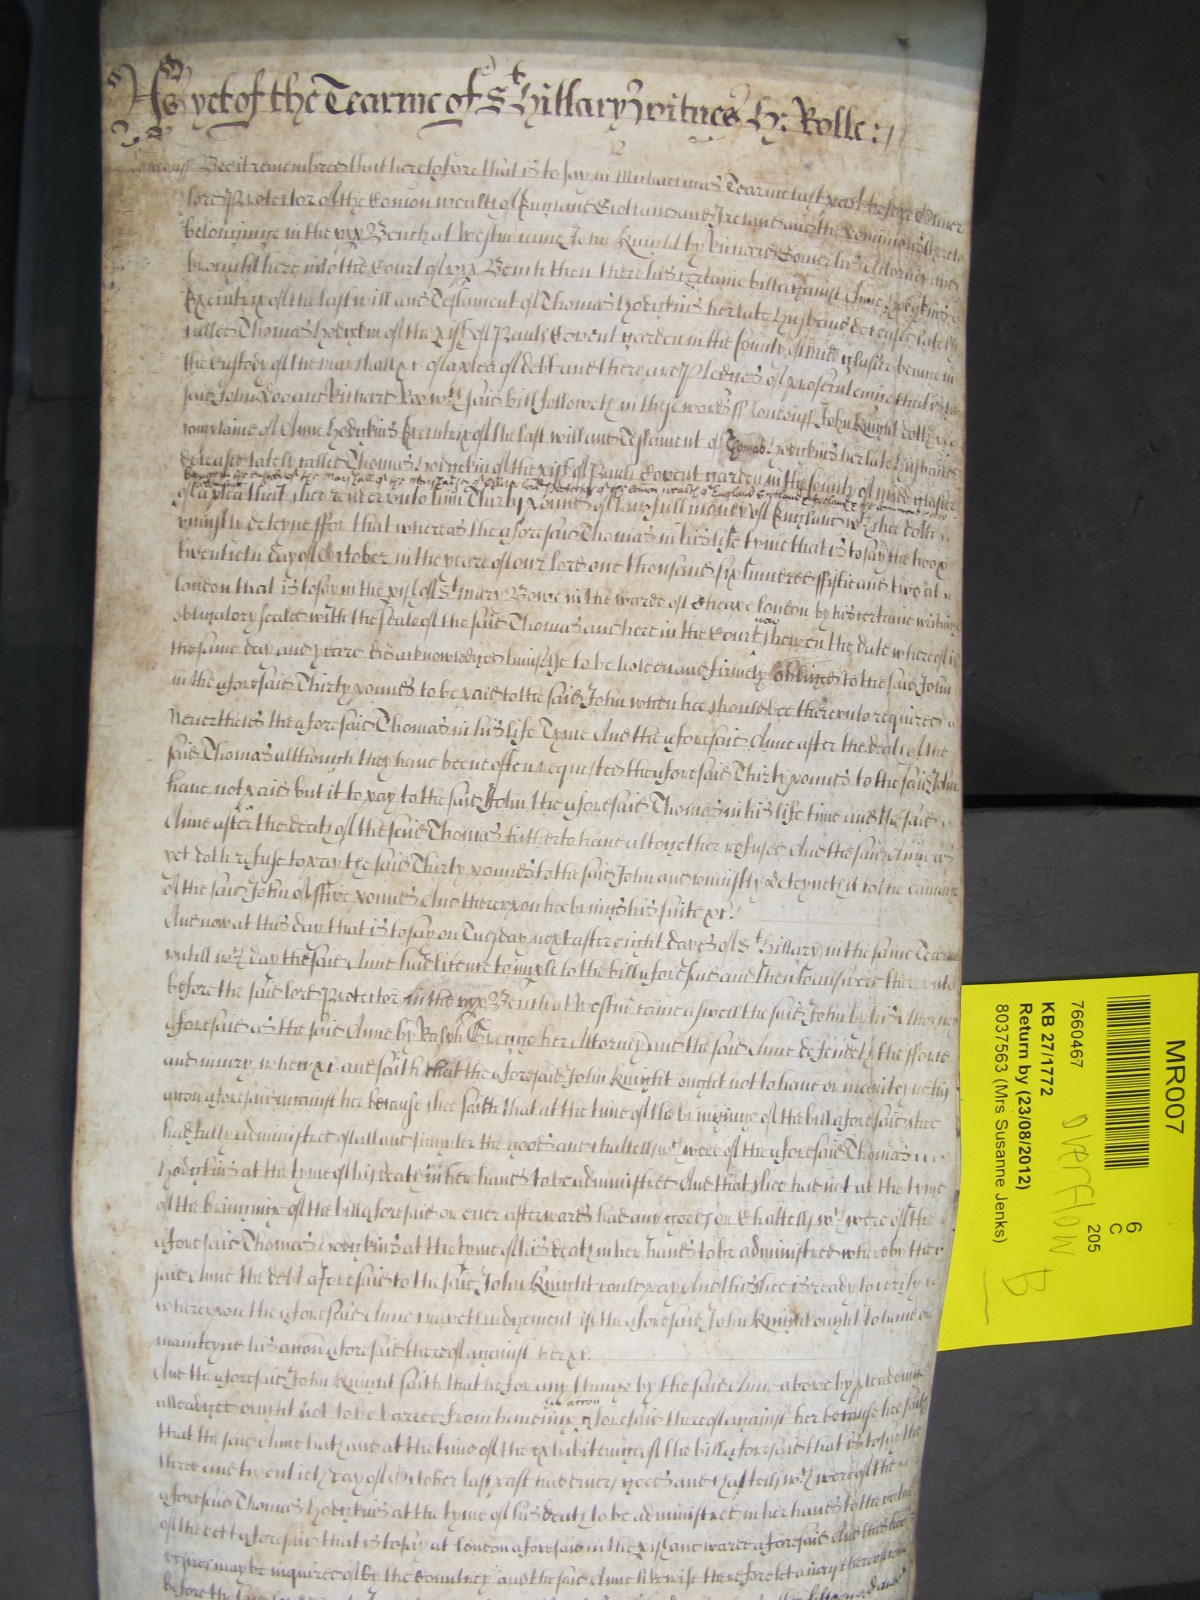 As yet of the Tearme of St Hillary witnes H: Rolle:
London ss Bee it remembred that heretofore that is to say in Michaelmas Tearme last past before Oliver
Lord Protector of the Comon wealth of England Scotland and Ireland and the Dominions thereto
belonginge in the upp Bench at Westm came John Knight by his Attorney and
brought here into the Court of upp Bench then there his certaine bill against Anne Hodgkins
Executrix of the last will and Testament of Thomas Hodgkins her late husband deceased late
called Thomas Hodgkin of the pish of Pauls Covent garden in the County of Midd beinge in
the custody of the Marshall &c of a plea of debt and there are Pledges of prosecuteing that is to say
John Doo and Richard Roo wch said bill followeth in these words ss London ss John Knight doth
complaine of Anne Hodgkins Executrix of the last will and Testament of Thomas Hodgkins her late husband
deceased late called Thomas Hodgkin of the pish of Pauls Covent garden in the County of Midd
beinge in the custody of the Marshall of the Marshalsea of Oliver Lord Protector of the Comon wealth of England Scotland & Ireland & the
of a plea that shee render unto him Thirty pounds of lawfull money of England wch shee doth
uniustly deteyne ffor that whereas the aforesaid Thomas in his life tyme that is to say the
twentieth day of October in the yeare of our Lord one thousand six hundred ffiftie and two at
London that is to say in the pish of St Mary Bowe in the warde of Cheape London by his certaine writing
obligatory sealed with the seale of the said Thomas and here in the Court now shewen the date whereof is
the same day and yeare did acknowledge himselfe to be holden and firmely obliged to the said John
in the aforesaid Thirty pounds to be paid to the said John when hee should bee thereunto required
Neverthelesse the aforesaid Thomas in his life Tyme And the aforesaid Anne after the death of the
said Thomas although they have beene often requested the aforesaid Thirty pounds to the said John
have not paid but it to pay to the said John the aforesaid Thomas in his life time and the said
Anne after the death of the said Thomas hitherto have altogether refused And the said Anne as
yet doth refuse to pay the said Thirty pounds to the said John and uniustly deteyneth it to the damage
of the said John of ffive pounds And thereupon hee brings his suite &c.
And now at this day that is to say on Tuesday next after eight dayes of St Hillary in the same Tearme
untill wch day the said Anne had licence to imple to the bill aforesaid and then to answere thereunto
before the said Lord Protector in the upp Bench at Westm came aswell the said John by his Attorney
aforesaid as the said Anne by Ralph her Attorney and the said Anne defendeth the fforce
and iniury when &c and saith that the aforesaid John Knight ought not to have or mainteyne his
accon aforesaid against her because shee saith that at the time of the bringinge of the bill aforesaid shee
had fully administred of all and singuler the goods and chattells wch were of the aforesaid Thomas
Hodgkins at the tyme of his death in her hands to be administred And that shee had not at the tyme
of the bringinge of the bill aforesaid or ever afterwards had any goods or Chattells wch were of the
aforesaid Thomas Hodgkins at the tyme of his death in her hands to be administred whereby the
said Anne the debt aforesaid to the said John Knight could pay And this shee is ready to verify
whereupon the aforesaid Anne prayeth iudgement if the aforesaid John Knight ought to have or
mainteyne his accon aforesaid thereof against her &c.
And the aforesaid John Knight saith that he for any thinge by the said Anne above by pleadinge
alleadged ought not to be barred from haveing his accon aforesaid thereof against her because hee saith
that the said Anne hath and at the time of the exhibiteinge of the bill aforesaid that is to say the
three and twentieth day of October last past had divers goods and chattells wch were of the
aforesaid Thomas Hodgkins at the tyme of his death to be administred in her hands to the value
of the debt aforesaid that is to say at London aforesaid in the pish and ward aforesaid And this hee
may be inquired of by the Countrey and the said Anne likewise therefore let a iury thereof come
before the
MR007
7660467
KB 27/1772
Return by (23/08/2012)
8037563 (Mrs Susanne Jenks)
6
C
205
overflow
B